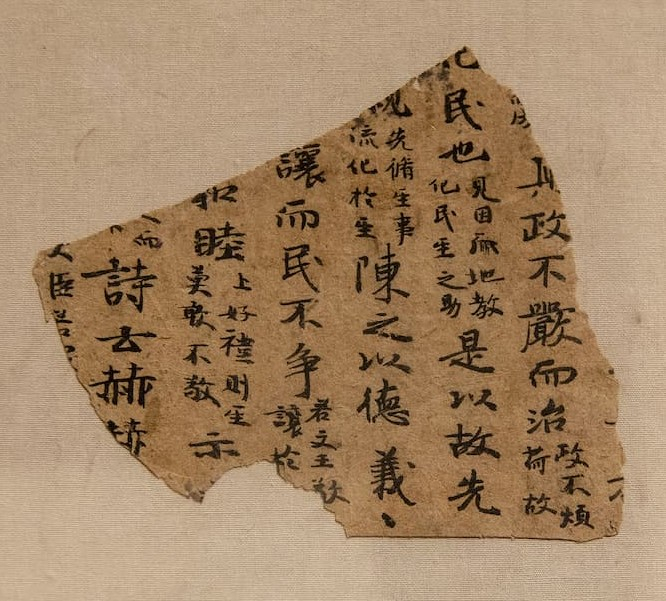 政不嚴而治政不煩苛故
化民也見因𠀑地教化民𤯔之易是以故先
先脩𤯔事流化於𤯔陳之以德義、
讓而民不争若文王敬讓於
和睦上好禮則𤯔莫敢不敬示
而詩云赫赫
臣